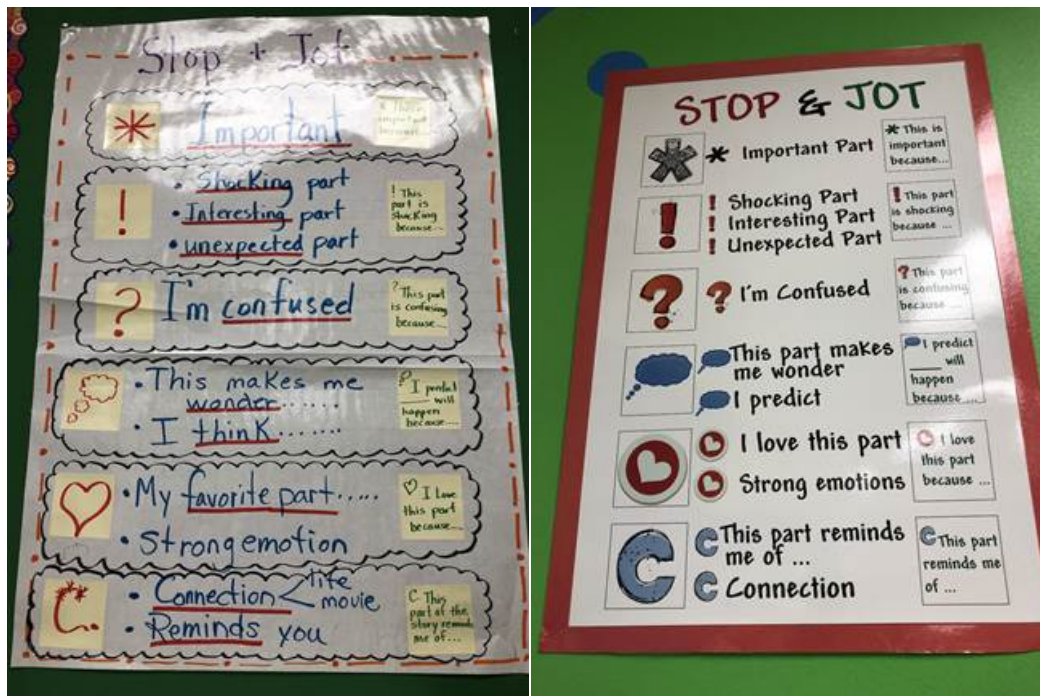 Stop + Jot
* Important
* This is
important
because...
!
• Shocking part
• Interesting part
• unexpected part
! This
part is
shocking
because...
?
I'm confused
? This part
is confusing
because...
• This makes me
wonder......
• I think.......
? I predict
____ will
happen
because...
• My favorite part.....
• Strong emotion
♡ I Love
this part
because...
C.
• Connection < life
movie
• Reminds you
C This
part of the
story reminds
me of...
STOP & JOT
* Important Part
* This is
important
because...
!
! Shocking Part
! Interesting Part
! Unexpected Part
! This part
is shocking
because ...
?
? I'm Confused
? This part
is confusing
because ...
This part makes
me wonder
I predict
I predict
____ will
happen
because ...
I love this part
Strong emotions
I love
this part
because ...
C
C This part reminds
me of ...
C Connection
C This part
reminds me
of ...